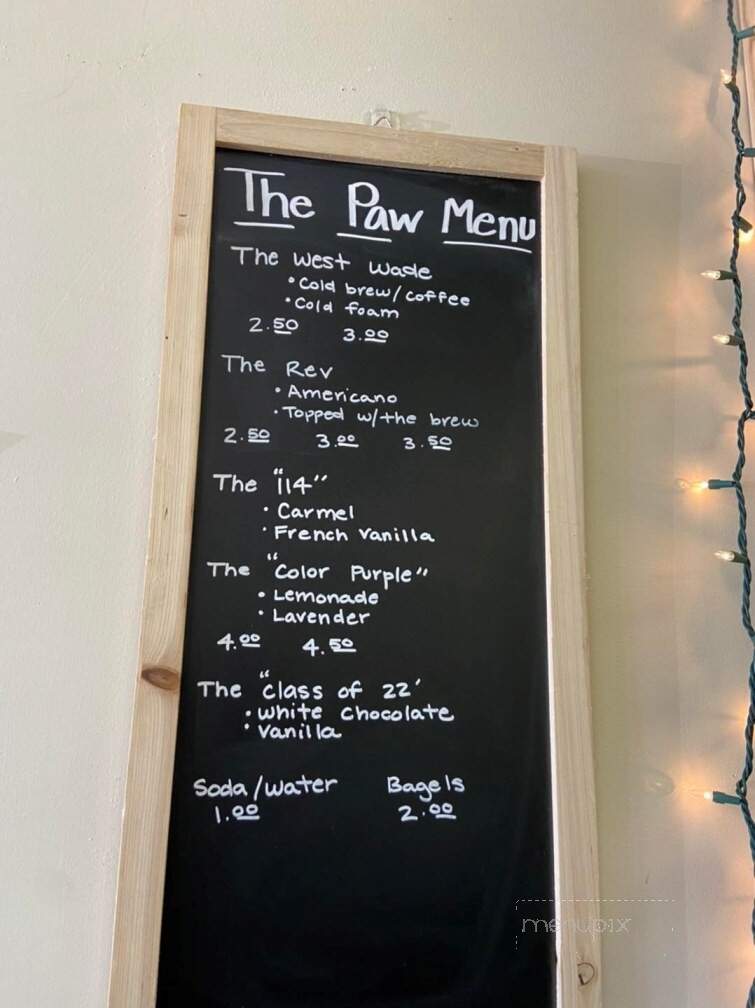 The Paw Menu
The West Wade
• Cold brew/coffee
• Cold foam
2.50 3.00
The Rev
• Americano
• Topped w/the brew
2.50 3.00 3.50
The "114"
• Carmel
• French Vanilla
The "Color Purple"
• Lemonade
• Lavender
4.00 4.50
The "Class of 22'
• White Chocolate
• Vanilla
Soda/water Bagels
1.00 2.00
menupix